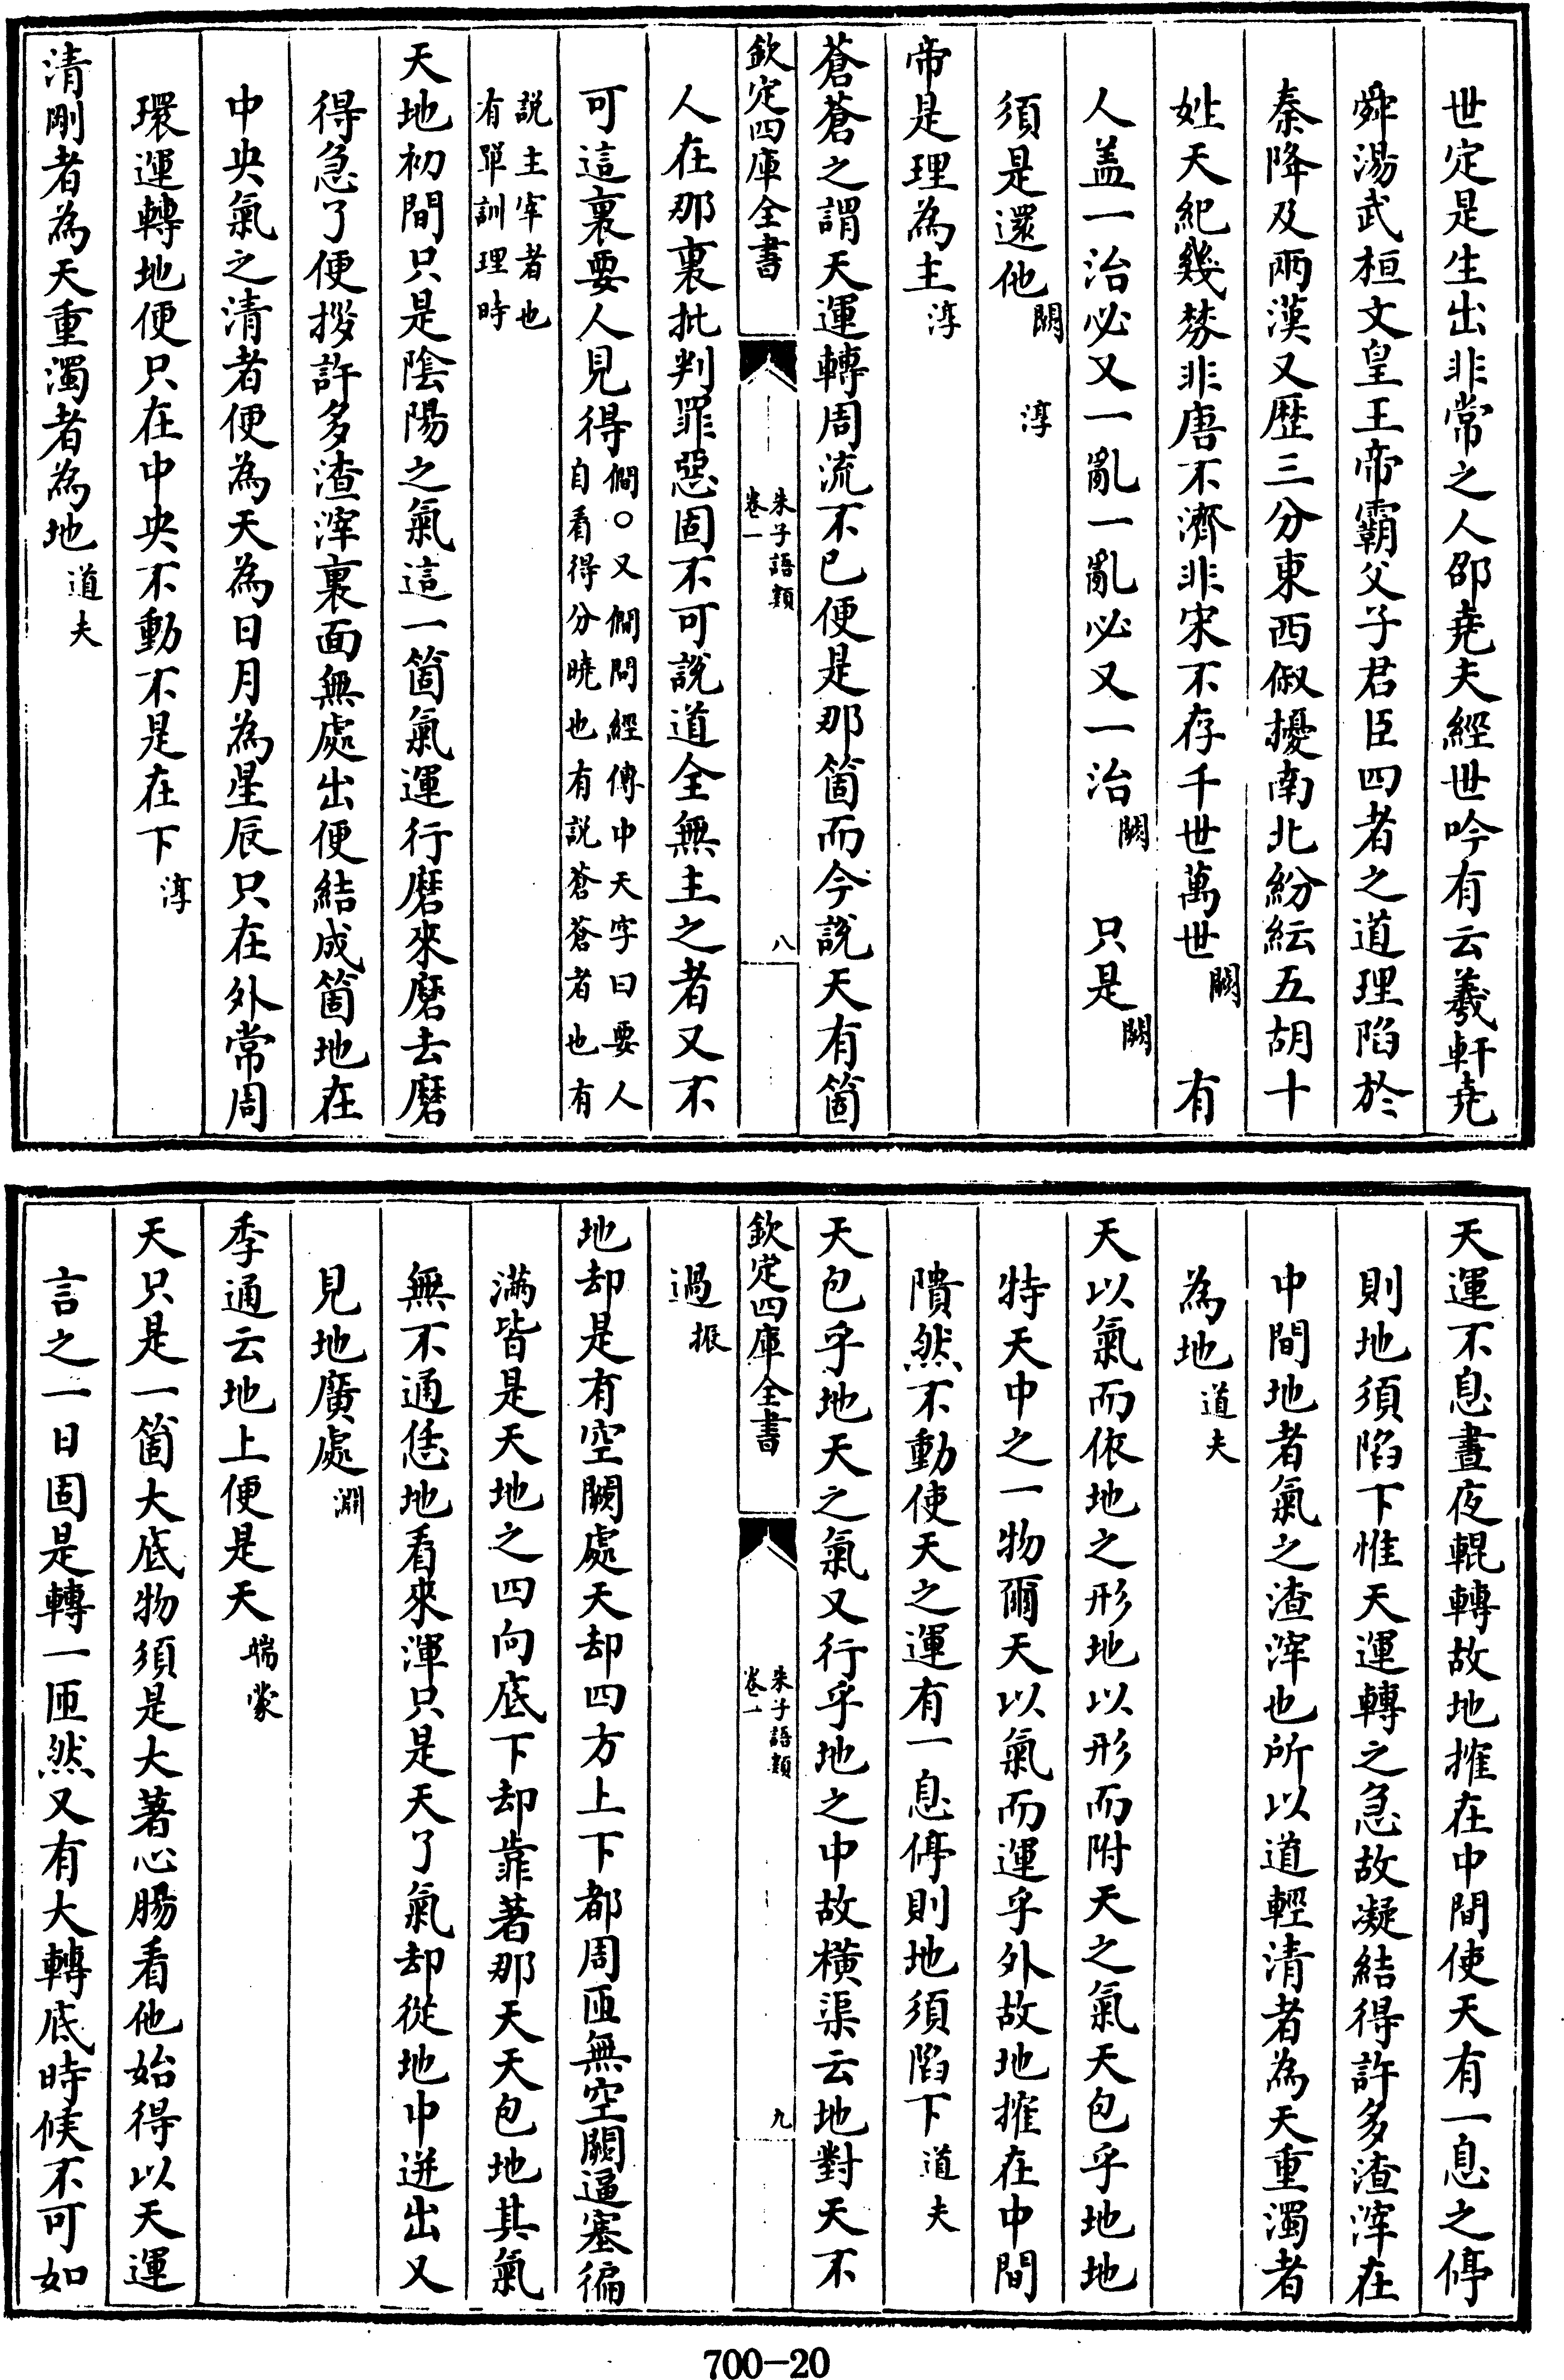 世定是生出非常之人邵堯夫經世吟有云羲軒堯
舜湯武桓文皇王帝霸父子君臣四者之道理陷於
秦降及兩漢又歷三分東西俶擾南北紛紜五胡十
姓天紀幾棼非唐不濟非宋不存千世萬世闕 有
人盖一治必又一亂一亂必又一治闕 只是闕
須是還他闕 淳
帝是理為主淳
蒼蒼之謂天運轉周流不已便是那箇而今說天有箇
欽定四庫全書
朱子語類
卷一
八
人在那裏批判罪惡固不可說道全無主之者又不
可這裏要人見得僩○又僩問經傳中天字曰要人
自看得分曉也有説蒼蒼者也有
説主宰者也
有單訓理時
天地初間只是陰陽之氣這一箇氣運行磨來磨去磨
得急了便拶許多渣滓裏面無處出便結成箇地在
中央氣之清者便為天為日月為星辰只在外常周
環運轉地便只在中央不動不是在下淳
清剛者為天重濁者為地道夫
天運不息晝夜輥轉故地搉在中間使天有一息之停
則地須陷下惟天運轉之急故凝結得許多渣滓在
中間地者氣之渣滓也所以道輕清者為天重濁者
為地道夫
天以氣而依地之形地以形而附天之氣天包乎地地
特天中之一物爾天以氣而運乎外故地搉在中間
隤然不動使天之運有一息停則地須陷下道夫
天包乎地天之氣又行乎地之中故橫渠云地對天不
欽定四庫全書
朱子語類
卷一
九
過振
地却是有空闕處天却四方上下都周匝無空闕逼塞徧
滿皆是天地之四向底下却靠著那天天包地其氣
無不通恁地看來渾只是天了氣却從地中迸出又
見地廣處淵
季通云地上便是天端蒙
天只是一箇大底物須是大著心腸看他始得以天運
言之一日固是轉一匝然又有大轉底時候不可如
700-20